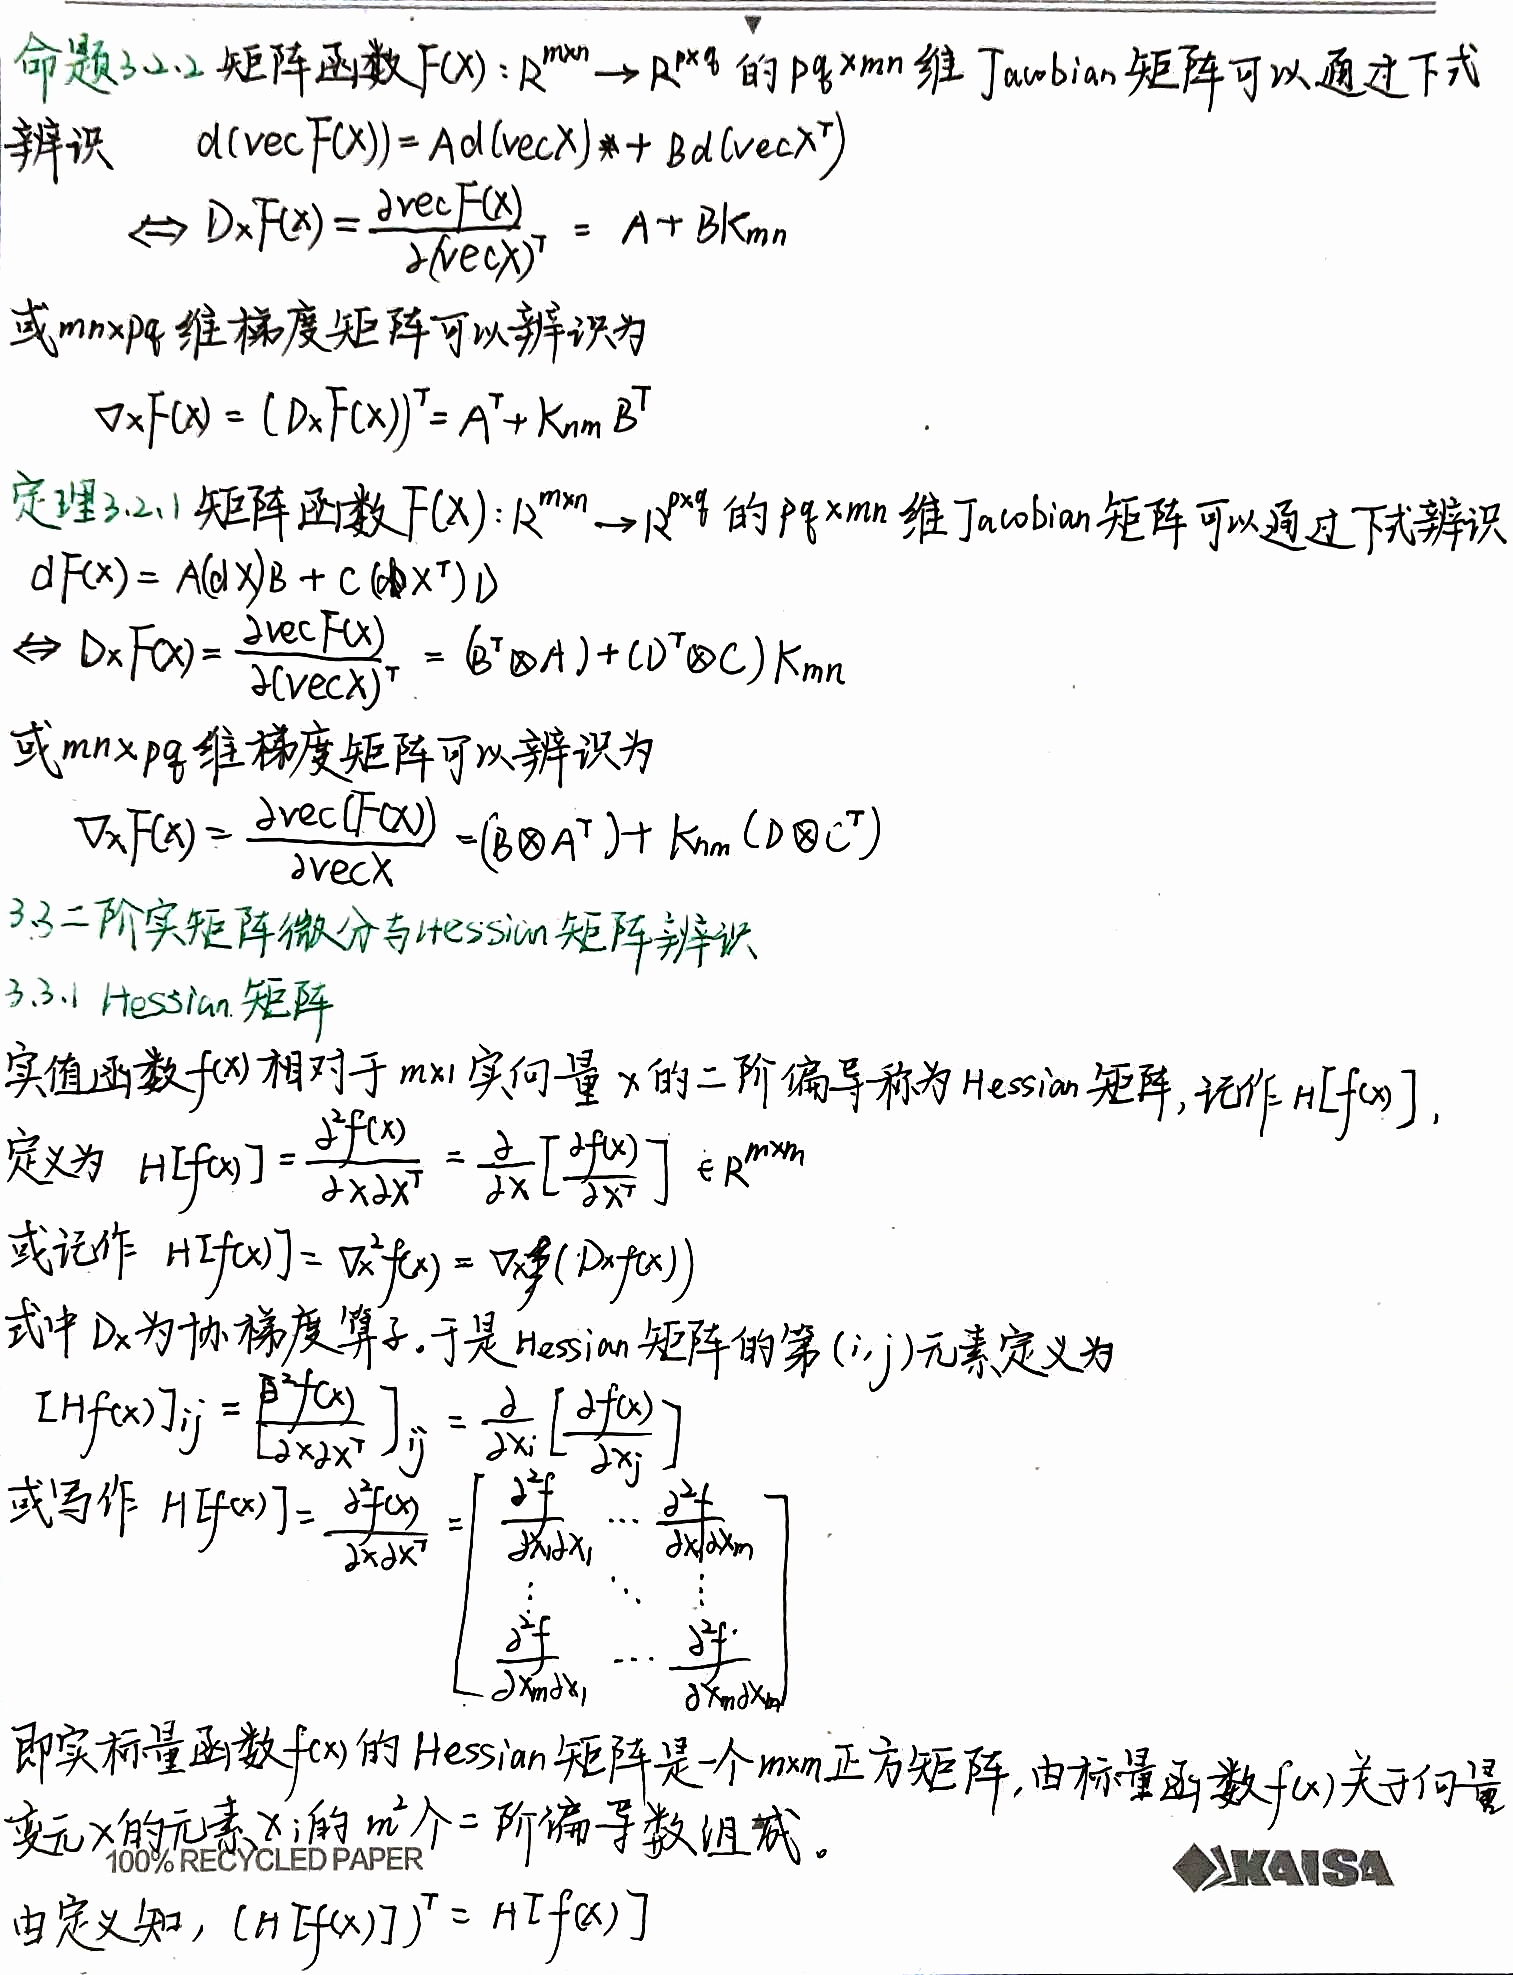 命题3.2.2 矩阵函数F(X):R^{m×n}→R^{p×q} 的pq×mn维 Jacobian矩阵可以通过下式
辨识 d(vecF(X))=Ad(vecX)+Bd(vecX^T)
⇔ D_xF(X)=∂vecF(X)/∂(vecX)^T = A+BK_{mn}
或mn×pq维梯度矩阵可以辨识为
∇_xF(X)=(D_xF(X))^T=A^T+K_{nm}B^T
定理3.2.1 矩阵函数F(X):R^{m×n}→R^{p×q} 的pq×mn维Jacobian矩阵可以通过下式辨识
dF(X)=A(dX)B+C(dX^T)D
⇔ D_xF(X)=∂vecF(X)/∂(vecX)^T =(B^T⊗A)+(D^T⊗C)K_{mn}
或mn×pq维梯度矩阵可以辨识为
∇_xF(X)=∂vec(F(X))/∂vecX=(B⊗A^T)+K_{nm}(D⊗C^T)
3.3二阶实矩阵微分与Hessian矩阵辨识
3.3.1 Hessian矩阵
实值函数f(x)相对于m×1实向量x的二阶偏导称为Hessian矩阵,记作H[f(x)],
定义为 H[f(x)]=∂²f(x)/∂x∂x^T=∂/∂x[∂f(x)/∂x^T]∈R^{m×m}
或记作 H[f(x)]=∇_x²f(x)=∇_x(D_xf(x))
式中D_x为协梯度算子.于是Hessian矩阵的第(i,j)元素定义为
[Hf(x)]_{ij}=[∂²f(x)/∂x∂x^T]_{ij}=∂/∂x_i[∂f(x)/∂x_j]
或写作 H[f(x)]=∂²f(x)/∂x∂x^T=[∂²f/∂x_1∂x_1 ⋯ ∂²f/∂x_1∂x_m
⋮ ⋱ ⋮
∂²f/∂x_m∂x_1 ⋯ ∂²f/∂x_m∂x_m]
即实标量函数f(x)的Hessian矩阵是一个m×m正方矩阵,由标量函数f(x)关于向量
变元x的元素x_i的m²个二阶偏导数组成。
100% RECYCLED PAPER
KAISA
由定义知,(H[f(x)])^T=H[f(x)]